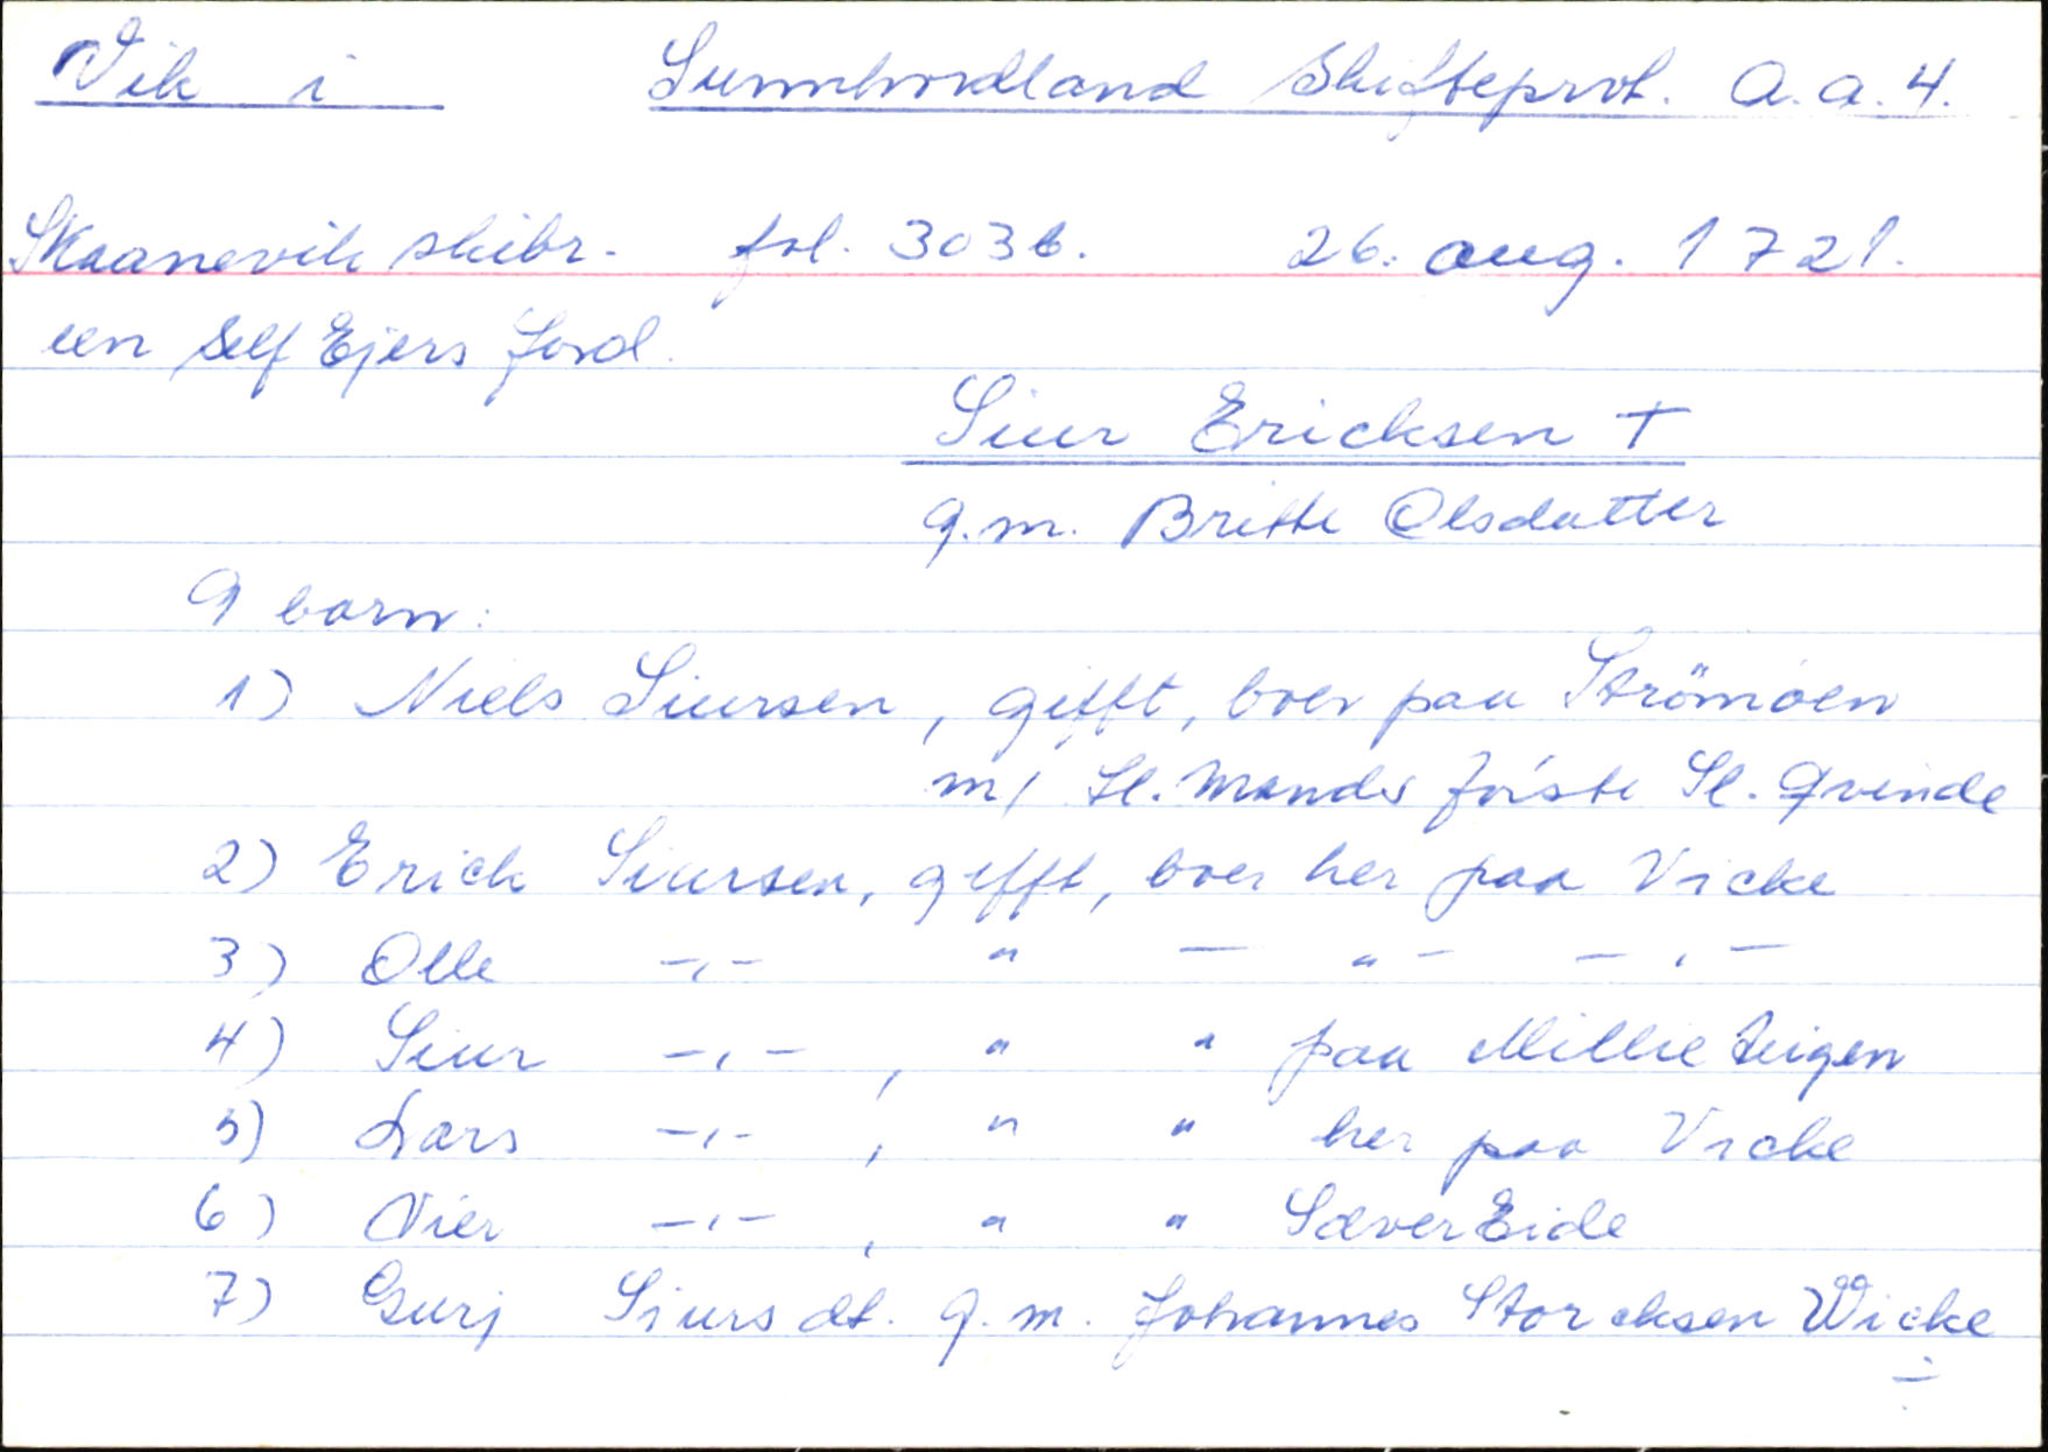 Vik i Sunnhordland Skifteprot. A.a.4.
Skaanevik skibr. fol. 303b. 26. aug. 1721.
een Self Ejers Jord.
Siur Ericksen †
g.m. Britte Olsdatter
9 barn:
1) Niels Siursen, gifft, boer paa Strömöen
m/ Sl. Mands föste Sl. Qvinde
2) Erick Siursen, gifft, boer her paa Vicke
3) Olle -"- " - "- -"-
4) Siur -"-, " " paa Millie teigen
5) Lars -"-, " " her paa Vicke
6) Vier -"-, " " SæverEide
7) Gurj Siursdt. g.m. Johannes Storcksen Wicke